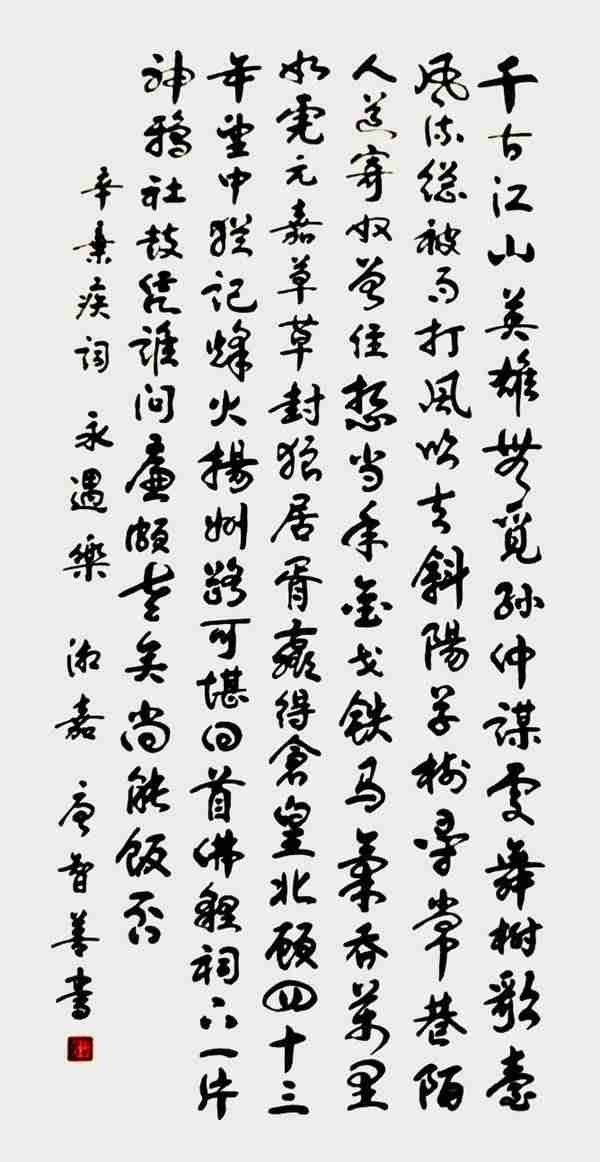 千古江山英雄無覓孫仲謀處舞榭歌臺
風流總被雨打風吹去斜陽草樹尋常巷陌
人道寄奴曾住想當年金戈鉄马氣吞萬里
如虎元嘉草草封狼居胥贏得倉皇北顧四十三
年望中猶記烽火揚州路可堪回首佛貍祠下一片
神鴉社鼓凭誰问廉頗老矣尚能飯否
辛棄疾詞 永遇樂 湘嘉 唐智善書